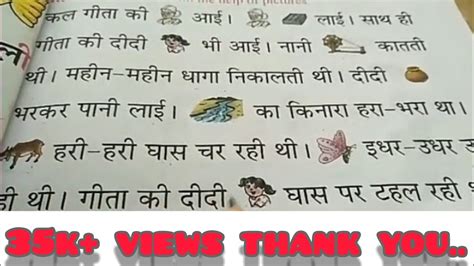 the help of pictures
कल गीता की आई। लाई। साथ ही
गीता की दीदी भी आई। नानी कातती
थी। महीन-महीन धागा निकालती थी। दीदी
भरकर पानी लाई। का किनारा हरा-भरा था।
हरी-हरी घास चर रही थी। इधर-उधर
ही थी। गीता की दीदी घास पर टहल रही
35K+ VIEWS THANK YOU..